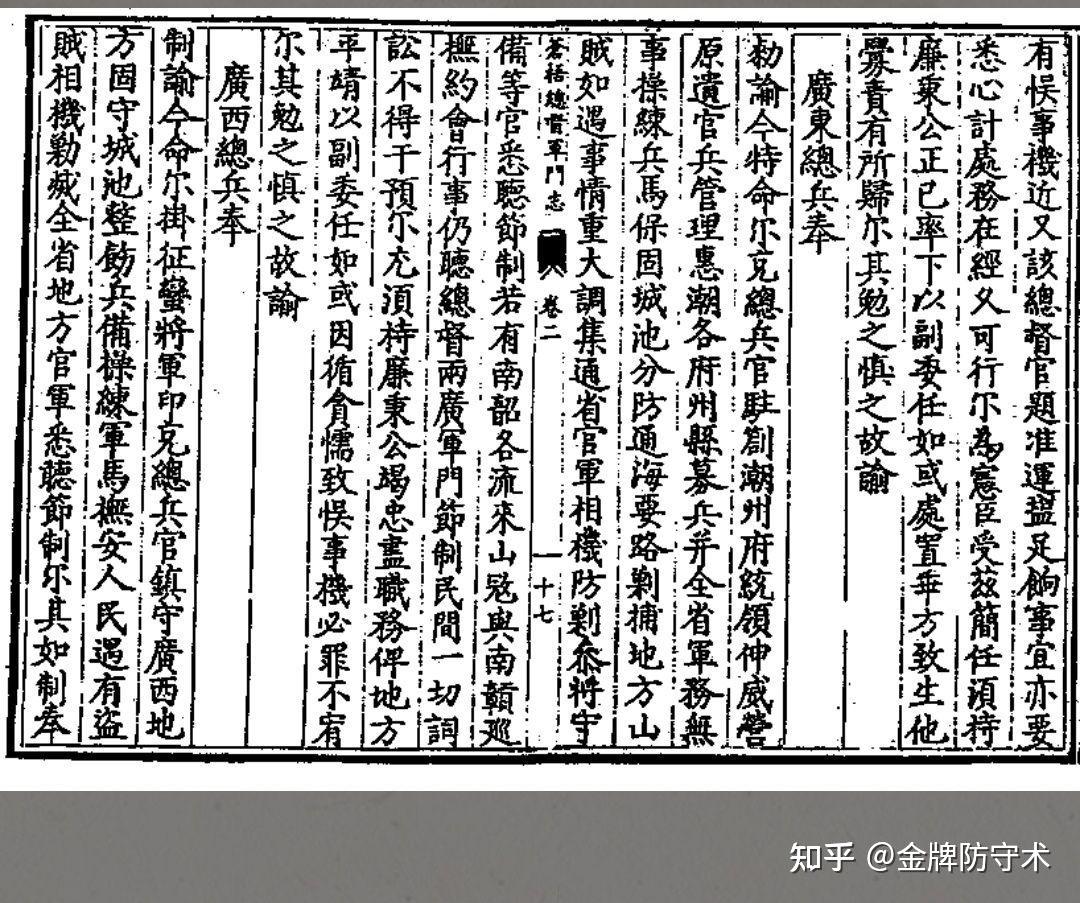 有悮事機近又該總督官題准運盐足餉事宜亦要
悉心計處務在經久可行尔為憲臣受茲簡任湏持
廉秉公正已率下以副委任如或處置乖方致生他
釁責有所歸尔其勉之慎之故諭
廣東總兵奉
勑諭今特命尔充總兵官駐劄潮州府統領伸威營
原遣官兵管理惠潮各府州縣募兵并全省軍務無
事操練兵馬保固城池分防通海要路剿捕地方山
賊如遇事情重大調集通省官軍相機防剿叅將守
蒼梧總督軍門志 卷二 十七
備等官悉聽節制若有南韶各流來山冦與南贛廵
撫約會行事仍聽總督兩廣軍門節制民間一切詞
訟不得干預尔尤湏持廉秉公竭忠盡職務俾地方
平靖以副委任如或因循貪懦致悮事機必罪不宥
尔其勉之慎之故諭
廣西總兵奉
制諭今命尔掛征蠻將軍印充總兵官鎮守廣西地
方固守城池整飭兵備操練軍馬撫安人民遇有盗
賊相機勦滅全省地方官軍悉聽節制尔其如制奉
知乎 @金牌防守术